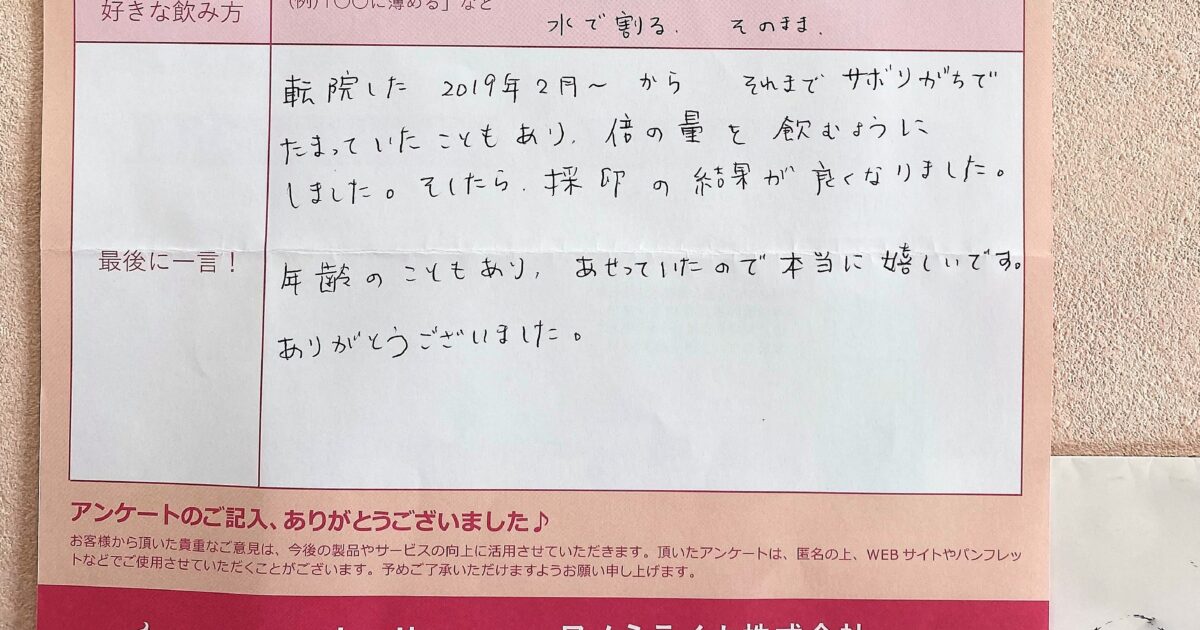 好きな飲み方
(例)「〇〇に薄める」など
水で割る. そのまま.
転院した 2019年2月〜 から それまで サボりがちで
たまっていたこともあり、倍の量を飲むように
しました。そしたら、採卵の結果が良くなりました。
最後に一言！
年齢のこともあり、あせっていたので本当に嬉しいです。
ありがとうございました。
アンケートのご記入、ありがとうございました♪
お客様から頂いた貴重なご意見は、今後の製品やサービスの向上に活用させていただきます。頂いたアンケートは、匿名の上、WEBサイトやパンフレッ
トなどでご使用させていただくことがございます。予めご了承いただけますようお願い申し上げます。